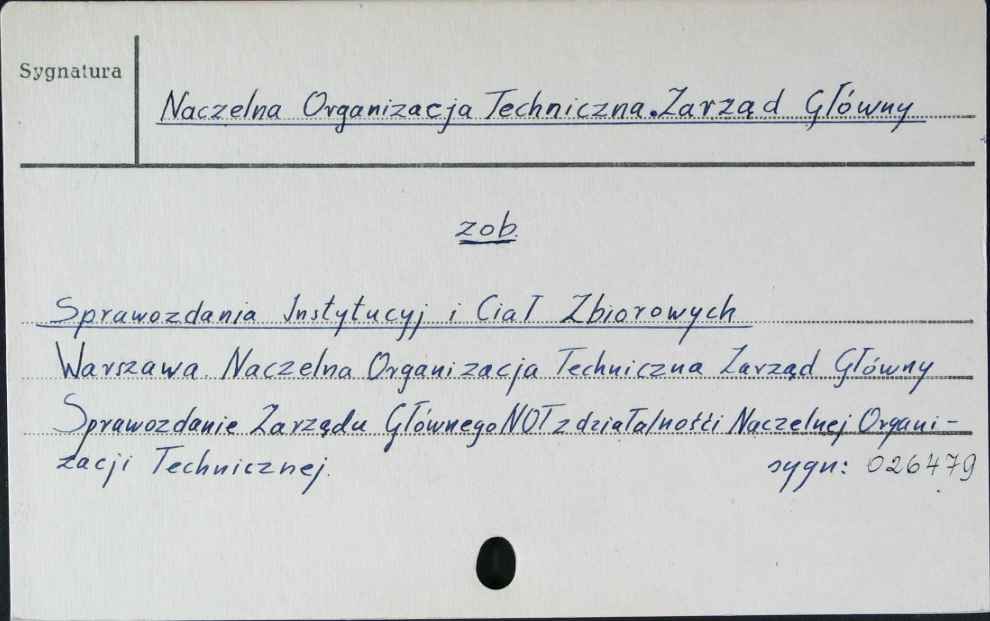 Sygnatura
Naczelna Organizacja Techniczna. Zarząd Główny
zob.
Sprawozdania Instytucyj i Ciał Zbiorowych
Warszawa. Naczelna Organizacja Techniczna Zarząd Główny
Sprawozdanie Zarządu Głównego NOT z działalnośći Naczelnej Organi-
zacji Technicznej.
sygn: 026479